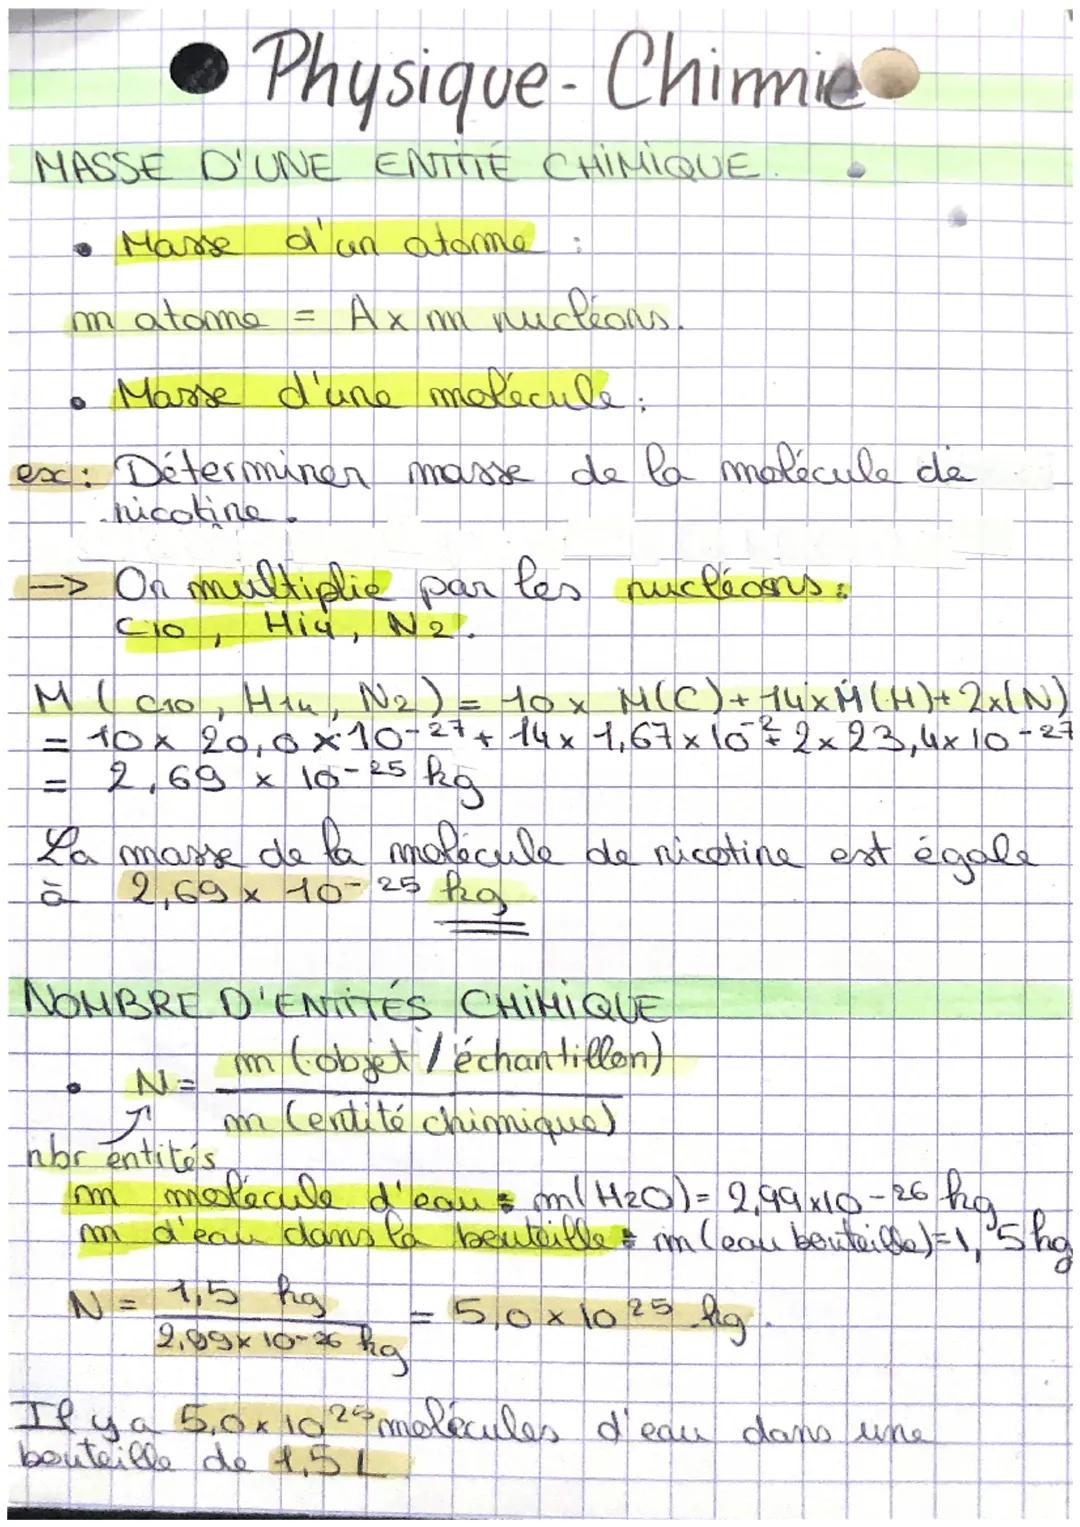 Physique-Chimie
MASSE D'UNE ENTITÉ CHIMIQUE.
• Masse d'un atome :
m atome = A x m nucléons.
• Masse d'une molécule :
ex : Déterminer masse de la molécule de
nicotine.
-> On multiplie par les nucléons :
C10, H14, N2.
M (C10, H14, N2) = 10 x M(C) + 14 x M(H) + 2x(N)
= 10 x 20,0 x 10-27 + 14 x 1,67 x 10-2 + 2 x 23,4 x 10-27
= 2,69 x 10-25 kg
La masse de la molécule de nicotine est égale
à 2,69 x 10-25 kg
NOMBRE D'ENTITÉS CHIMIQUE
• N = m (objet / échantillon)
m (entité chimique)
nbr entités
m molécule d'eau : m(H2O) = 2,99x10-26 kg
m d'eau dans la bouteille : m (eau bouteille)=1,5 kg
N = 1,5 kg = 5,0 x 10 25 kg.
2,99x 10-26 kg
Il y a 5,0 x 10 25 molécules d'eau dans une
bouteille de 1,5 L